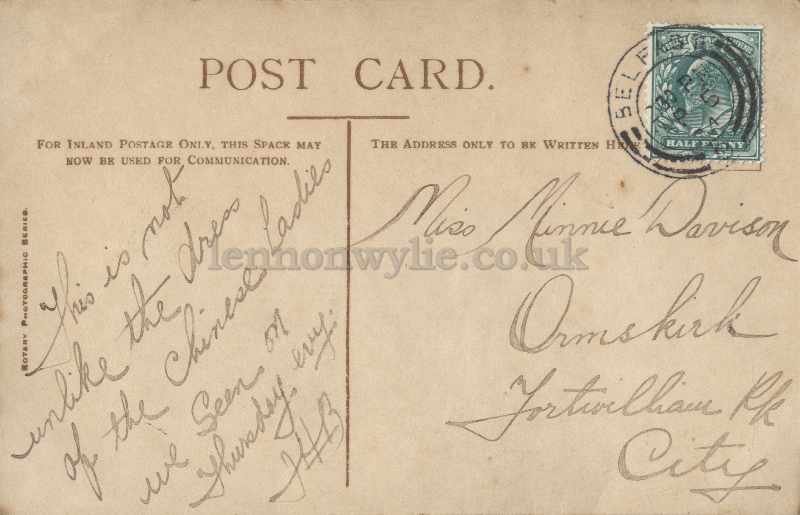 POST CARD.
FOR INLAND POSTAGE ONLY, THIS SPACE MAY
NOW BE USED FOR COMMUNICATION.
THE ADDRESS ONLY TO BE WRITTEN HERE
HALFPENNY
BELFAST
ROTARY PHOTOGRAPHIC SERIES.
This is not
unlike the dress
of the Chinese Ladies
we seen on
Thursday evg.
Miss Minnie Davison
Ormskirk
Fortwilliam Pk
City
lennonwylie.co.uk